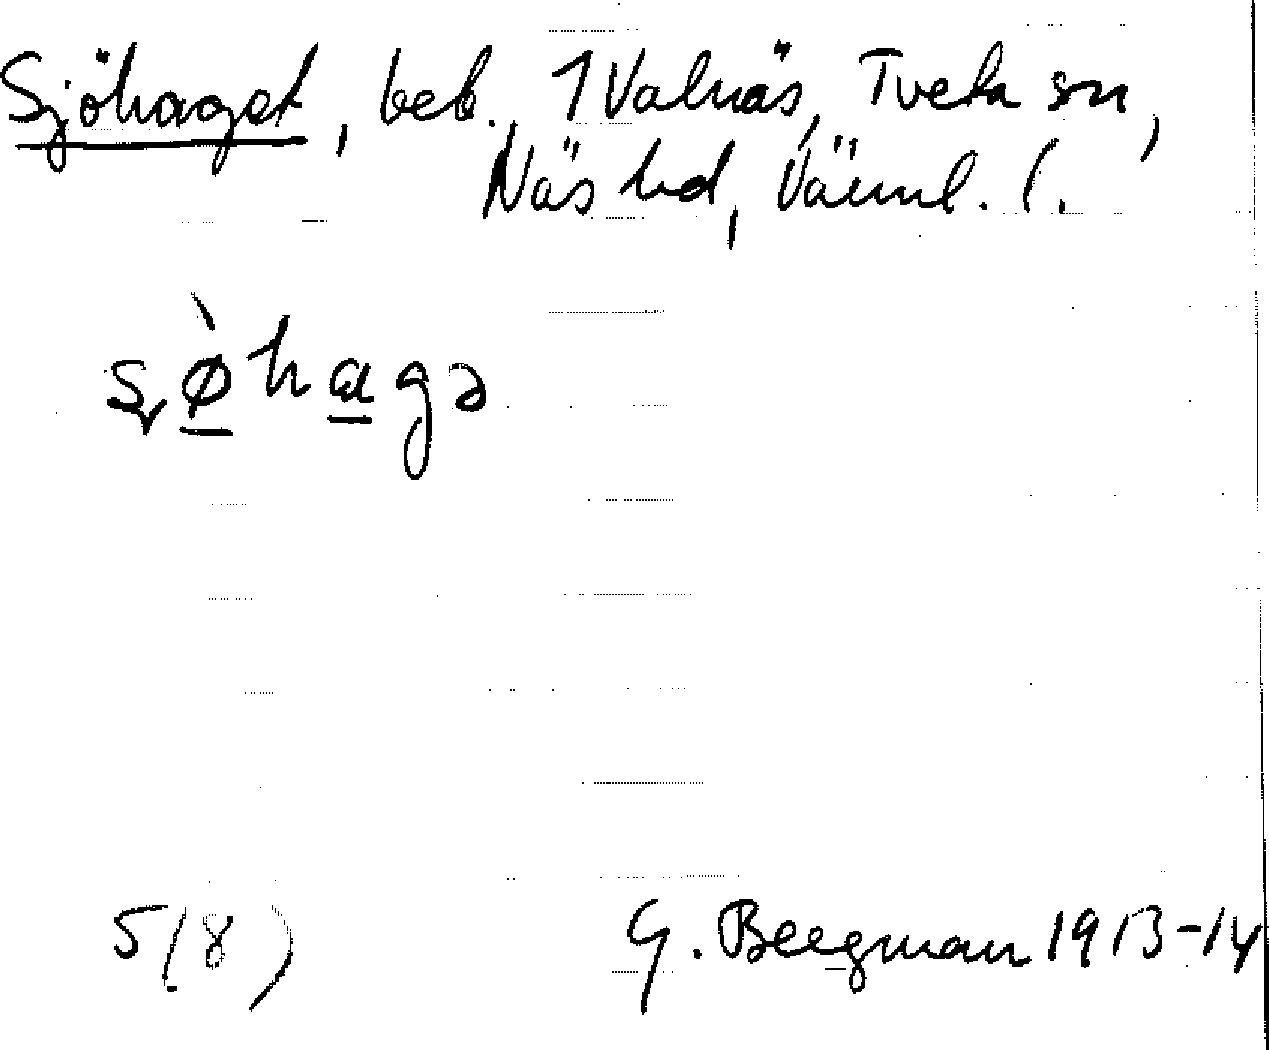 Sjöhaget, beb. 1 Valnäs, Tveta sn,
Näs hd, Värml. l.
s̬ø̱̀ha̱gə
5(8)
G. Bergman 1913-14